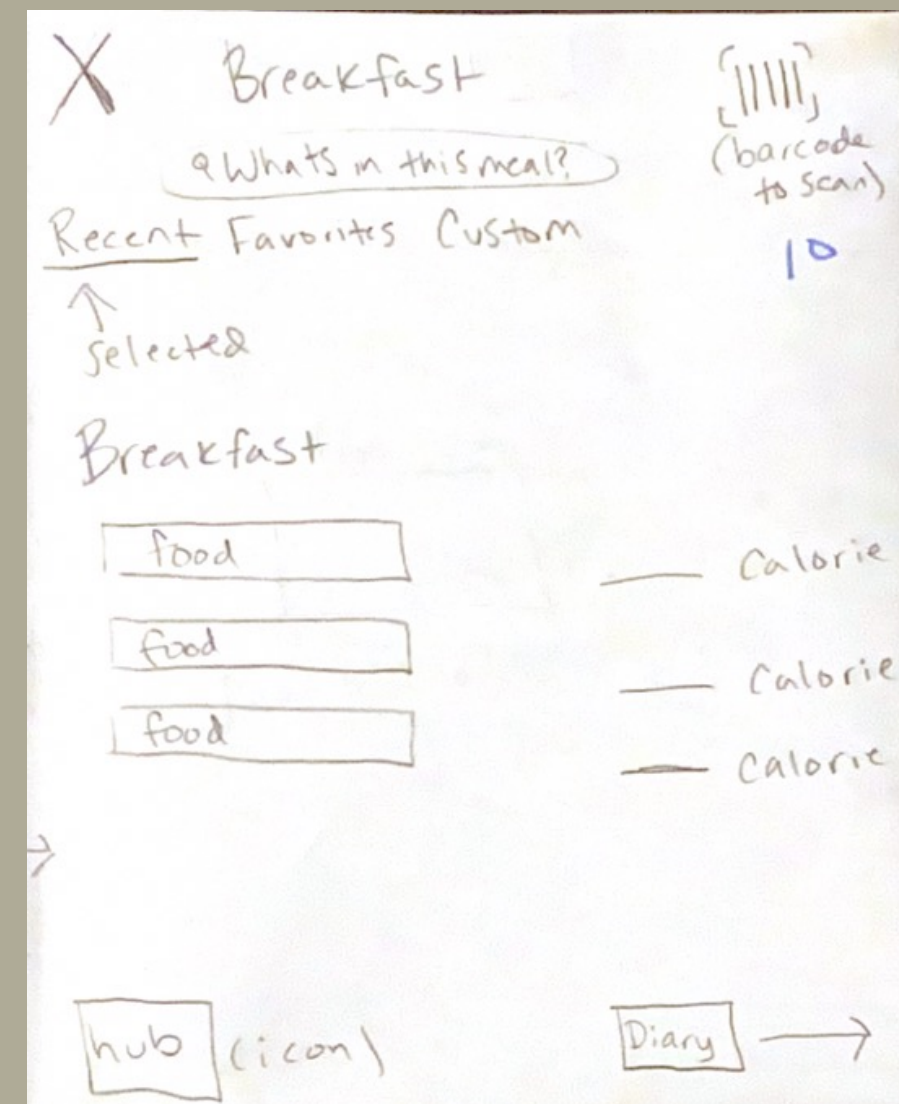 X Breakfast
Whats in this meal?
(barcode
to scan)
Recent Favorites Custom
10
selected
Breakfast
food Calorie
food Calorie
food Calorie
hub (icon) Diary